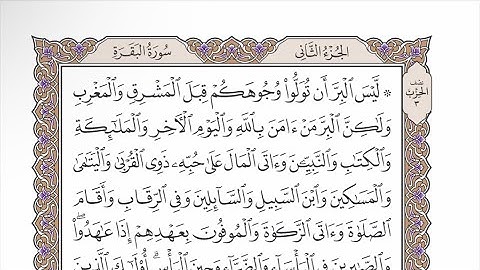 سُورَةُ البَقَرَةِ
الجُزْءُ الثَّانِي
نصف
الحِزْب
٣
۞ لَّيْسَ ٱلْبِرَّ أَن تُوَلُّوا۟ وُجُوهَكُمْ قِبَلَ ٱلْمَشْرِقِ وَٱلْمَغْرِبِ
وَلَٰكِنَّ ٱلْبِرَّ مَنْ ءَامَنَ بِٱللَّهِ وَٱلْيَوْمِ ٱلْءَاخِرِ وَٱلْمَلَٰٓئِكَةِ
وَٱلْكِتَٰبِ وَٱلنَّبِيِّـۧنَ وَءَاتَى ٱلْمَالَ عَلَىٰ حُبِّهِۦ ذَوِى ٱلْقُرْبَىٰ وَٱلْيَتَٰمَىٰ
وَٱلْمَسَٰكِينَ وَٱبْنَ ٱلسَّبِيلِ وَٱلسَّآئِلِينَ وَفِى ٱلرِّقَابِ وَأَقَامَ
ٱلصَّلَوٰةَ وَءَاتَى ٱلزَّكَوٰةَ وَٱلْمُوفُونَ بِعَهْدِهِمْ إِذَا عَٰهَدُوا۟ۖ
وَٱلصَّٰبِرِينَ فِى ٱلْبَأْسَآءِ وَٱلضَّرَّآءِ وَحِينَ ٱلْبَأْسِۗ أُو۟لَٰٓئِكَ ٱلَّذِينَ